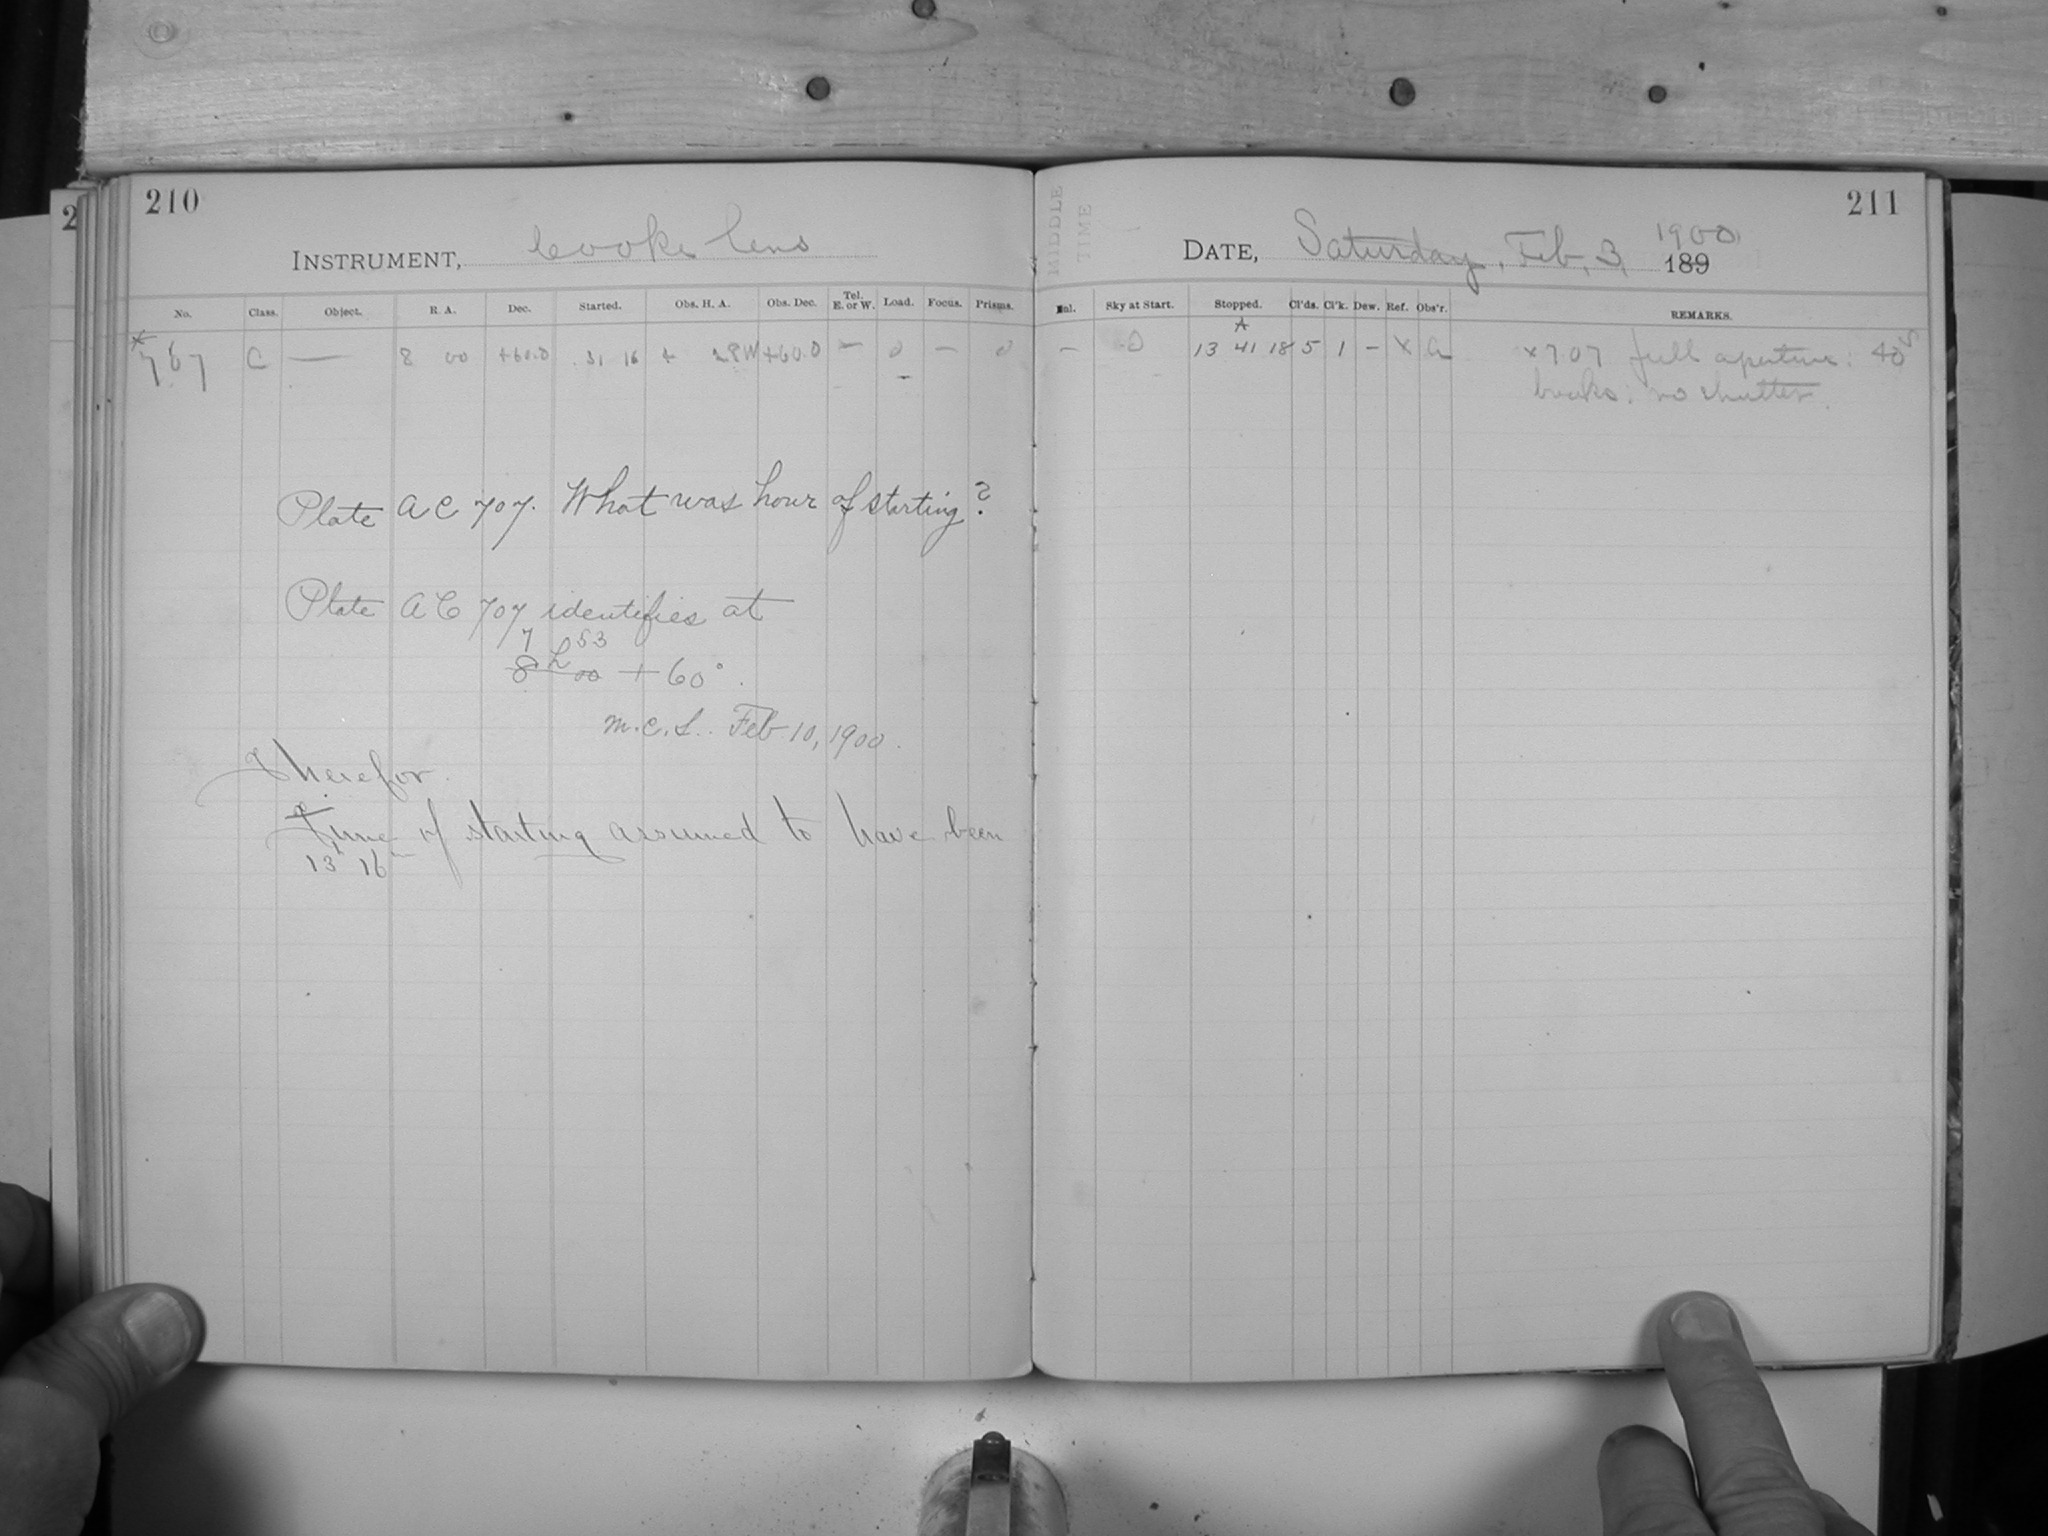 210
INSTRUMENT, Cooke lens
No. Class. Object. R. A. Dec. Started. Obs. H. A. Obs. Dec. Tel. E. or W. Load. Focus. Prisms.
x
707 C — 8 00 +60.0 31 16 + +60.0 — 0 — 0
Plate AC 707. What was hour of starting?
Plate AC 707 identifies at
7 53
8h 00 +60°.
M.C.S. Feb 10, 1900.
Therefor
Time of starting assumed to have been
13h 16m
2
MIDDLE
TIME
211
DATE, Saturday, Feb. 3, 1900
189
Enl. Sky at Start. Stopped. Cl'ds. Cl'k. Dew. Ref. Obs'r. REMARKS.
A
— 0 13 41 18 5 1 — x a x707 full aperture: 40s
breaks: no shutter.